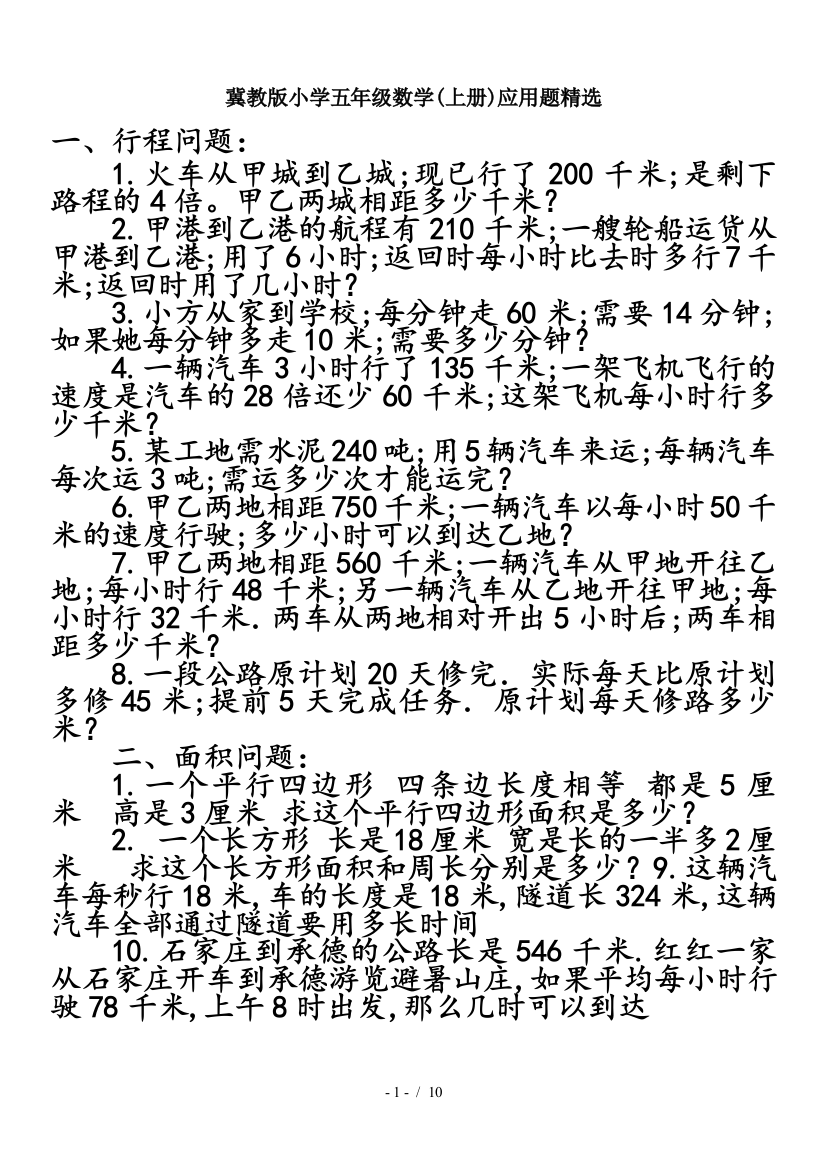 冀教版小学五年级数学(上册)应用题精选
一、行程问题:
1.火车从甲城到乙城;现已行了 200 千米;是剩下
路程的 4 倍。甲乙两城相距多少千米?
2.甲港到乙港的航程有 210 千米;一艘轮船运货从
甲港到乙港;用了 6 小时;返回时每小时比去时多行 7 千
米;返回时用了几小时?
3.小方从家到学校;每分钟走 60 米;需要 14 分钟;
如果她每分钟多走 10 米;需要多少分钟?
4.一辆汽车 3 小时行了 135 千米;一架飞机飞行的
速度是汽车的 28 倍还少 60 千米;这架飞机每小时行多
少千米?
5.某工地需水泥 240 吨;用 5 辆汽车来运;每辆汽车
每次运 3 吨;需运多少次才能运完?
6.甲乙两地相距 750 千米;一辆汽车以每小时 50 千
米的速度行驶;多少小时可以到达乙地?
7.甲乙两地相距 560 千米;一辆汽车从甲地开往乙
地;每小时行 48 千米;另一辆汽车从乙地开往甲地;每
小时行 32 千米.两车从两地相对开出 5 小时后;两车相
距多少千米?
8.一段公路原计划 20 天修完. 实际每天比原计划
多修 45 米;提前 5 天完成任务. 原计划每天修路多少
米?
二、面积问题:
1.一个平行四边形 四条边长度相等 都是 5 厘
米 高是 3 厘米 求这个平行四边形面积是多少?
2. 一个长方形 长是 18 厘米 宽是长的一半多 2 厘
米 求这个长方形面积和周长分别是多少? 9.这辆汽
车每秒行 18 米,车的长度是 18 米,隧道长 324 米,这辆
汽车全部通过隧道要用多长时间
10.石家庄到承德的公路长是 546 千米.红红一家
从石家庄开车到承德游览避暑山庄,如果平均每小时行
驶 78 千米,上午 8 时出发,那么几时可以到达
- 1 - / 10